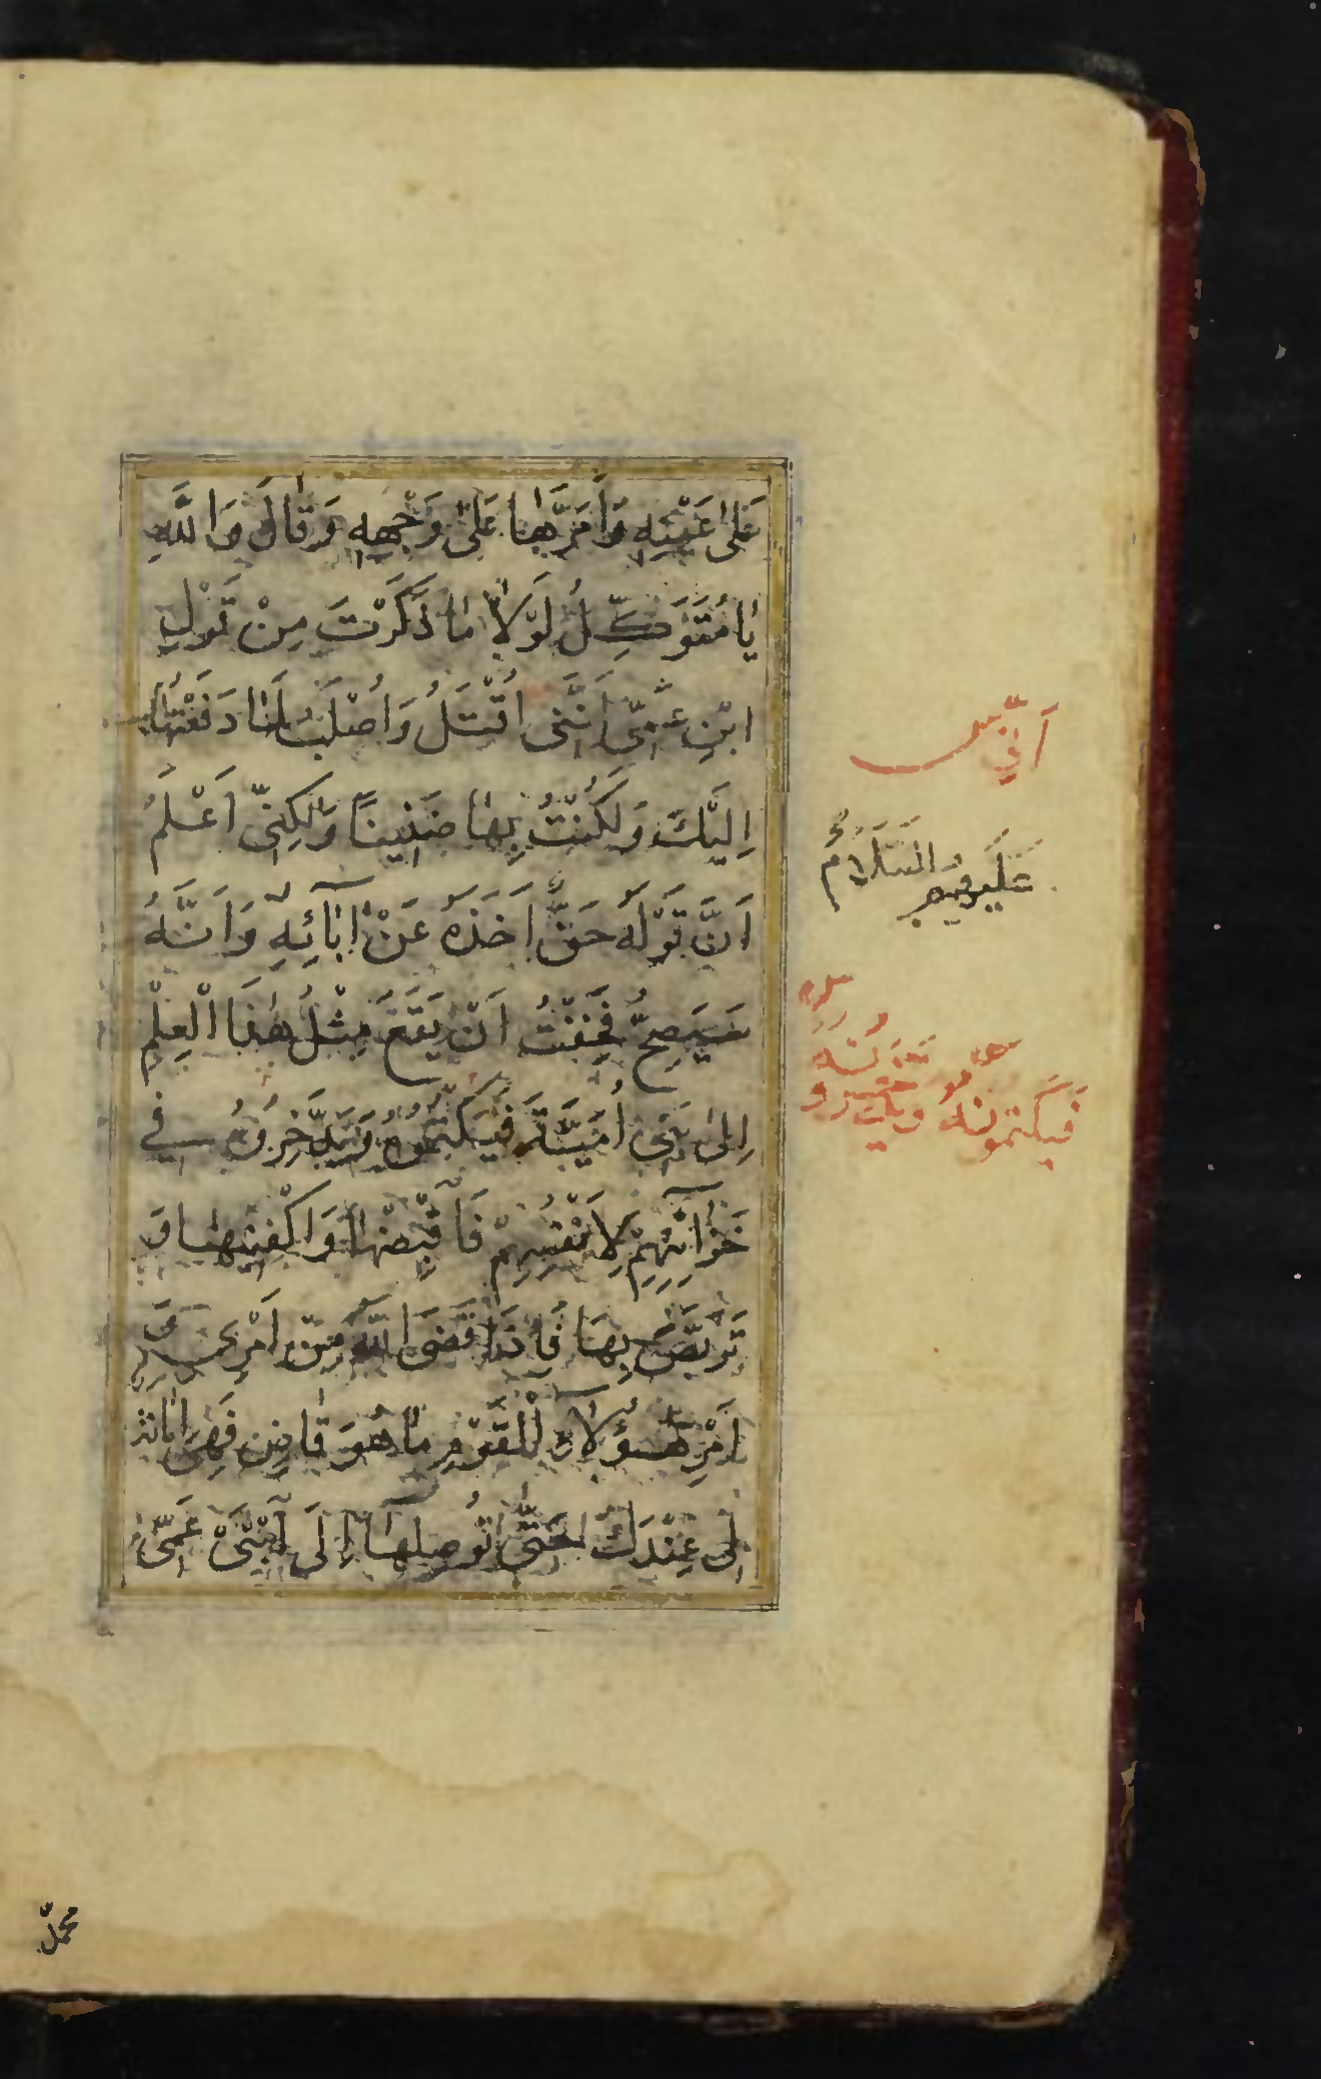 عَلىٰ عَيْنِهِ وَاَمَرَّهٰا عَلىٰ وَجْهِهِ وَقٰالَ وَاللَّهِ
يٰا مُتَوَكِّلُ لَوْلاٰ مٰا ذَكَرْتَ مِنْ قَوْلِ
ابْنِ عَمّى اَنَّنى اُقْتَلُ وَاُصْلَبُ لَمٰا دَفَعْتُهٰا
اِلَيْكَ وَلَكُنْتُ بِهٰا ضَنيناً وَلٰكِنّى اَعْلَمُ
اَنَّ قَوْلَهُ حَقٌّ اَخَذَهُ عَنْ اٰبٰائِهِ وَاَنَّهُ
سَيَصِحُّ فَخِفْتُ اَنْ يَقَعَ مِثْلُ هٰذَا الْعِلْمِ
اِلىٰ بَنى اُمَيَّةَ فَيَكْتُمُوهُ وَيَدَّخِرُوهُ فى
خَزٰائِنِهِمْ لِاَنْفُسِهِمْ فَاقْبِضْهٰا وَاكْفِنيهٰا وَ
تَرَبَّصْ بِهٰا فَاِذٰا قَضَى اللّٰهُ مِنْ اَمْرى وَ
اَمْرِ هٰؤُلاٰءِ الْقَوْمِ مٰا هُوَ قٰاضٍ فَهِىَ اَمٰانَةٌ
لى عِنْدَكَ حَتّىٰ تُوصِلَهٰا اِلَى ابْنَىْ عَمّى
عَلَيْهِمُ السَّلاٰمُ
فَيَكْتُمُونَهُ
محمّد